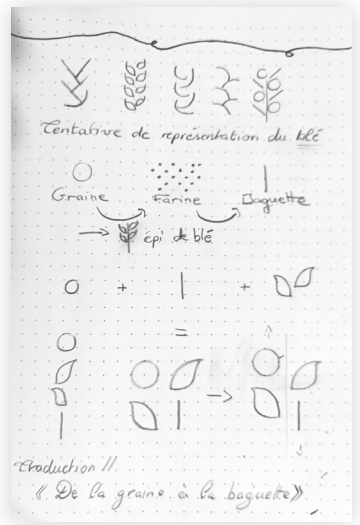 Tentative de représentation du blé
Graine Farine Baguette
épi de blé
+ +
=
Traduction //
« De la graine à la baguette »